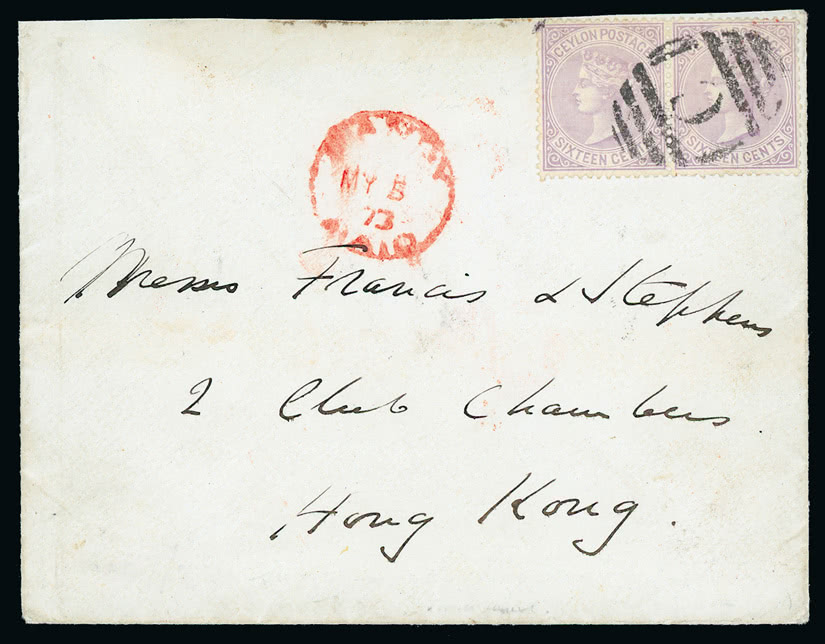 CEYLON POSTAGE
SIXTEEN CENTS
SIXTEEN CENTS
MY 5
73
PAID
Messrs Francis & Stephens
2 Club Chambers.
Hong Kong.